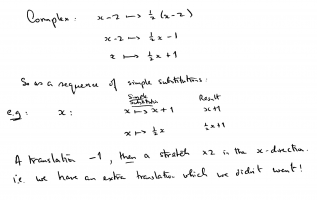 Complex: x-2 ⟼ ½(x-2)
x-2 ⟼ ½x-1
x ⟼ ½x+1
So as a sequence of simple substitutions:
Simple substitution Result
eg: x: x ⟼ x+1 x+1
x ⟼ ½x ½x+1
A translation -1, then a stretch x2 in the x-direction.
i.e. we have an extra translation which we didn't want!